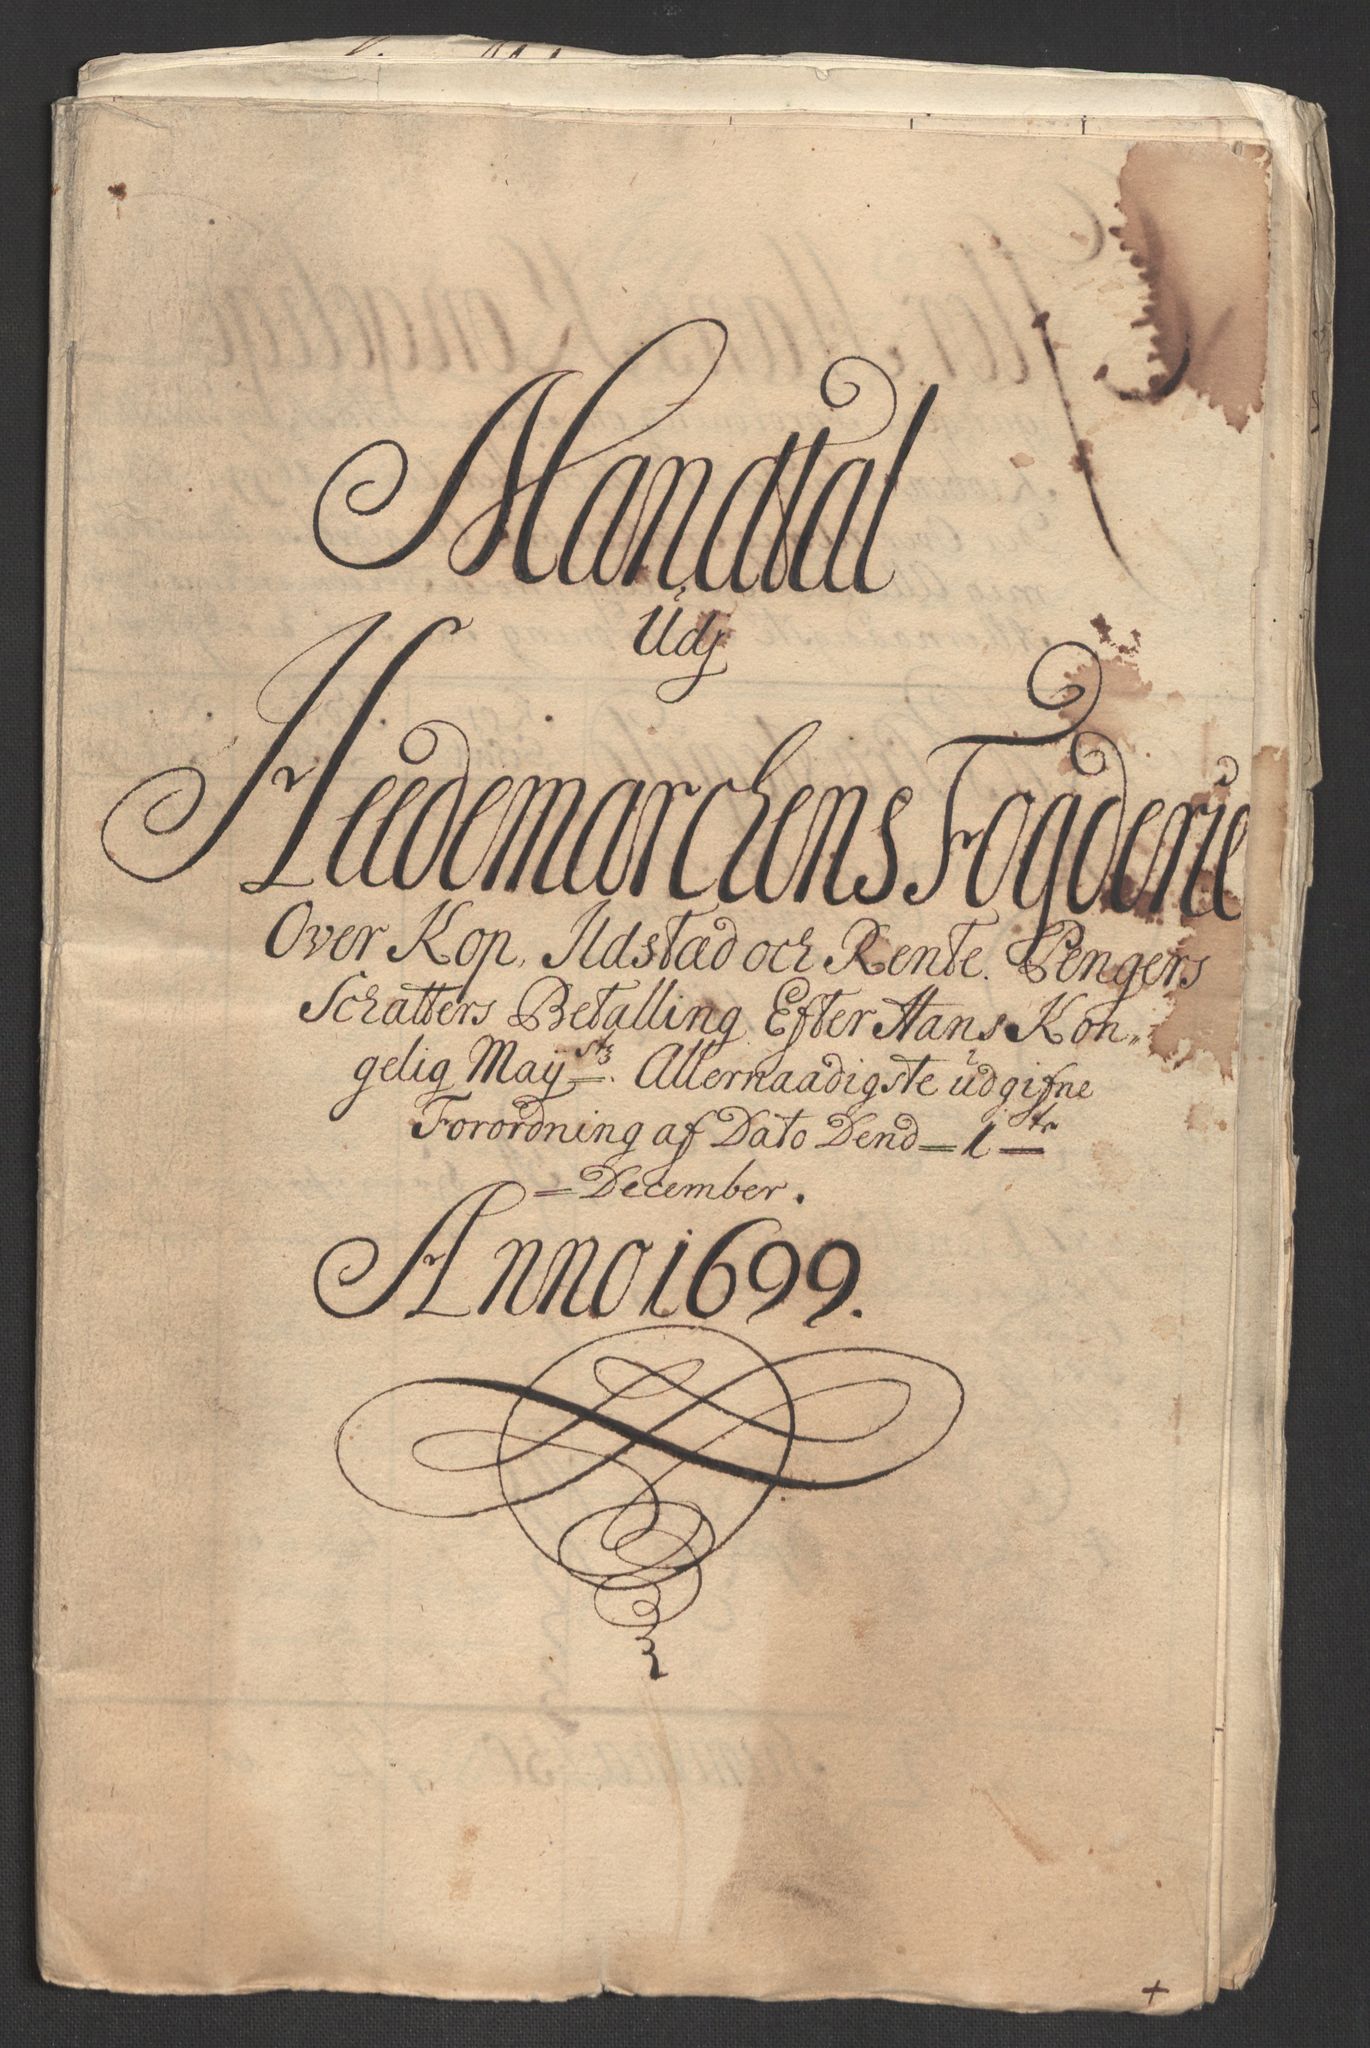 Mandtal
Udj
Heedemarchens Fogderie
Over Kop, Ildstæd och Rente Pengers
Schatters Betalling Efter Hans Kon„
gelig Maÿ.stz Allernaadigste udgifne
Forordning af Dato Dend 1te
December.
Anno 1699.